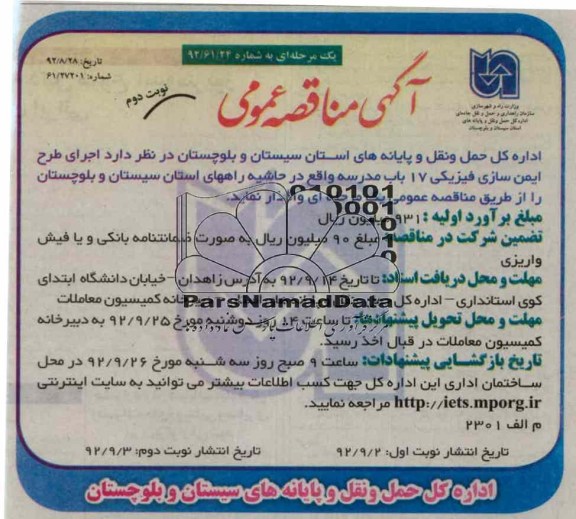 یک مرحله‌ای به شماره ۹۲/۶۱/۲۲
تاریخ: ۹۲/۸/۲۸
شماره: ۶۱/۲۷۲۰۱
آگهی مناقصه عمومی
نوبت دوم
وزارت راه و شهرسازی
سازمان راهداری و حمل و نقل جاده‌ای
اداره کل حمل و نقل و پایانه های
استان سیستان و بلوچستان
اداره کل حمل ونقل و پایانه های استان سیستان و بلوچستان در نظر دارد اجرای طرح
ایمن سازی فیزیکی ۱۷ باب مدرسه واقع در حاشیه راههای استان سیستان و بلوچستان
را از طریق مناقصه عمومی یک مرحله ای واگذار نماید.
مبلغ برآورد اولیه : ۹۳۱ میلیون ریال
تضمین شرکت در مناقصه: مبلغ ۹۰ میلیون ریال به صورت ضمانتنامه بانکی و یا فیش
واریزی
مهلت و محل دریافت اسناد: تا تاریخ ۹۲/۹/۱۴ به آدرس زاهدان –خیابان دانشگاه ابتدای
کوی استانداری– اداره کل خانه کمیسیون معاملات
مهلت و محل تحویل پیشنهادها: تا ساعت ۱۴ روز دوشنبه مورخ ۹۲/۹/۲۵ به دبیرخانه
کمیسیون معاملات در قبال اخذ رسید.
تاریخ بازگشایی پیشنهادات: ساعت ۹ صبح روز سه شنبه مورخ ۹۲/۹/۲۶ در محل
ساختمان اداری این اداره کل جهت کسب اطلاعات بیشتر می توانید به سایت اینترنتی
http://iets.mporg.ir مراجعه نمایید.
م الف ۲۳۰۱
تاریخ انتشار نوبت اول: ۹۲/۹/۲
تاریخ انتشار نوبت دوم: ۹۲/۹/۳
اداره کل حمل ونقل و پایانه های سیستان و بلوچستان
ParsNamadData